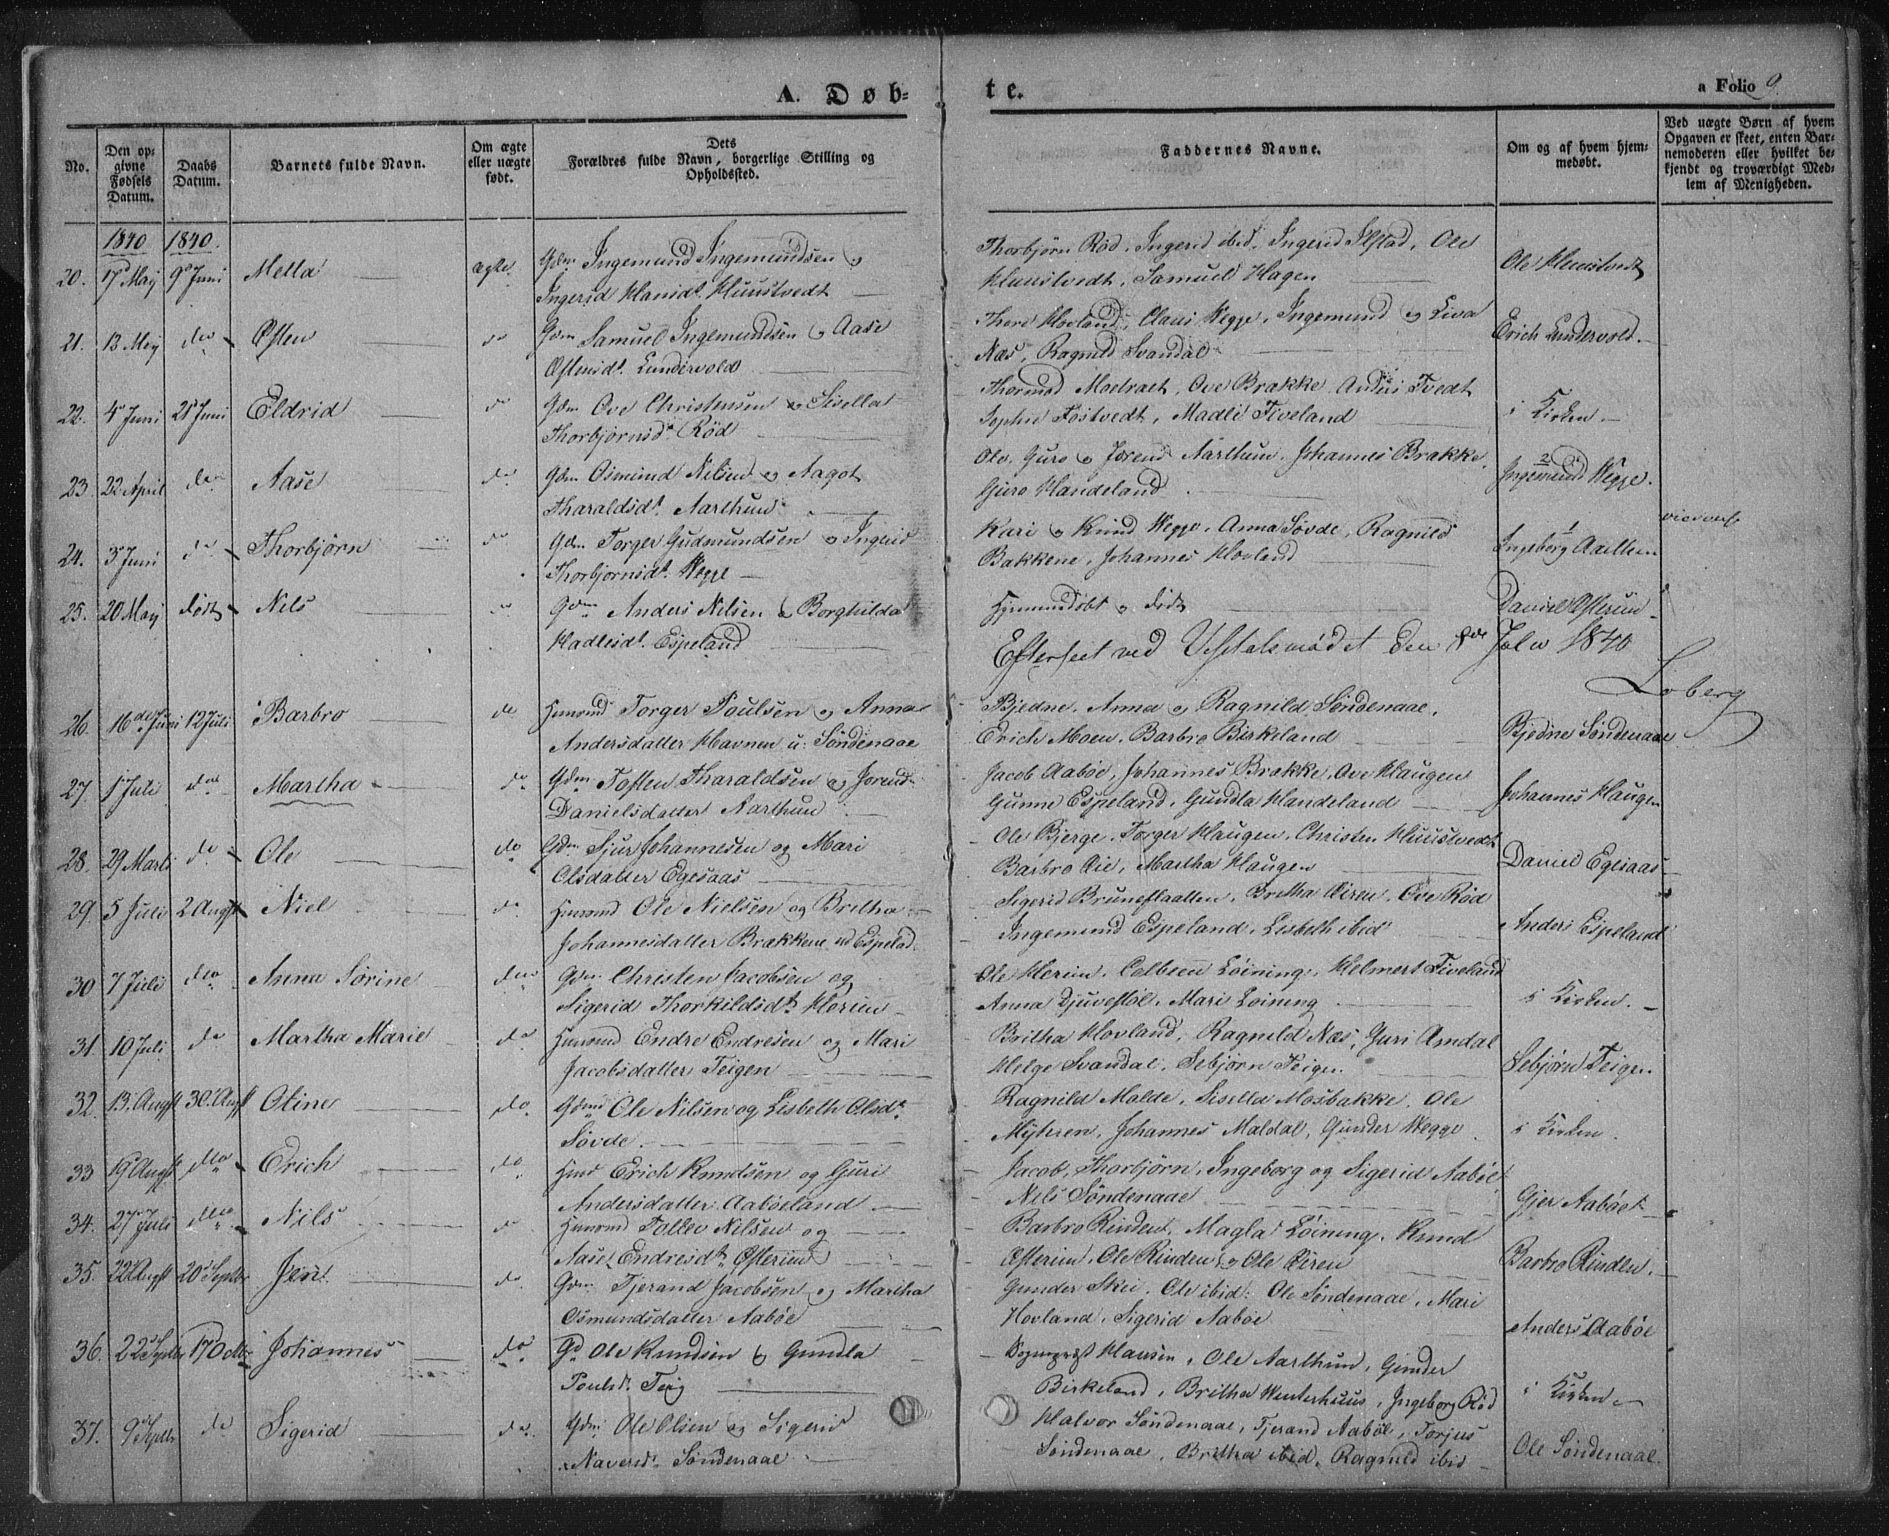 A. Døb-
te.
a Folio 9.
No.
Den op-
givne
Fødsels
Datum.
Daabs
Datum.
Barnets fulde Navn.
Om ægte
eller uægte
født.
Dets
Forældres fulde Navn, borgerlige Stilling og
Opholdssted.
Faddernes Navne.
Om og af hvem hjem-
medøbt.
Ved uægte Børn af hvem
Opgaven er skeet, enten Bar-
nemoderen eller hvilket be-
kjendt og troværdigt Med-
lem af Menigheden.
1840 1840.
20. 17 May 9 Juni Metta ægte. Gdm Ingemund Ingemundsen og
Ingerid Hansdt. Huustvedt
Thorbjørn Rød, Ingerid ibid, Ingerid Ilstad, Ole
Huustvedt, Samuel Hagen
Ole Huustvedt
21. 13 May do Østen do Gdm Samuel Ingemundsen og Aase
Østensdt. Lundervold
Thore Hovland, Claus Wegge, Ingemund og Liva
Næs, Ragnild Svandal
Erich Lundervold.
22. 4 Juni 21 Juni Eldrid do Gdm Ove Christensen og Sisella
Thorbjørnsd. Rød
Thormod Moetraet, Ove Brakke, Tvedt
Sophie Fostvedt, Madli Tiveland
i Kirken
23. 22 April do Aase do Gdm Osmund Nilsen og Aagot
Tharaldsdt. Aarthun
Ole, Guro og Jorend Aarthun, Johannes Brakke,
Guro Handeland
Ingemund Wegge.
24. 3 Juni do Thorbjørn do Gdm Torger Gudmundsen og Ingerid
Thorbjørnsdt. Wegge
Kari og Knud Wegge, Anna Søvde, Ragnild
Bakkene, Johannes Hovland
Ingeborg
25. 20 May død Nils do Gdm Anders Nilsen og Borghilda
Hadlesdt. Espeland
Hjemmedøbt og død
Daniel Østerun
Efterseet ved den 1840
Loberg
26. 16de Juni 12 Juli Barbro do Huusmd Torger Poulsen og Anna
Andersdatter Havnen u: Søndenaae
Bjedne, Anna og Ragnild Søndenaae,
Erich Moen, Barbro Birkeland
Bjedne Søndenaae
27. 1 Juli do Martha do Gdm Tosten Tharaldsen og Jorend
Danielsdatter Aarthun
Jacob Aabøe, Johannes Brakke, Ove Haugen
Gunne Espeland, Gundla Handeland
Johannes Haugen
28. 29 Marts do Ole do Gdm Sjur Johannesen og Mari
Olsdatter Egesaas
Ole Bjerge, Torger Haugen, Christen Huustvedt
Barbro, Martha Haugen
Daniel Egesaas
29. 5 Juli 2 Augst Niel do Huusmd Ole Nielsen og Britha
Johannesdatter Brakkene ud Espelad
Sigerid Bruneflaatten, Britha Øiren, Ove Rød
Ingemund Espeland, Lisbeth ibid
Anders Espeland
30 7 Juli do Anna Sørine do Gdm Christen Jacobsen og
Sigerid Thorkildsdt. Herim
Ole Herim, Løining, Helmert Tiveland
Anna Djuvestøl, Mari Løining
i Kirken.
31. 10 Juli do Martha Marie do Huusmd Endre Endresen og Mari
Jacobsdatter Teigen
Britha Hovland, Ragnild Næs, Guri Amdal
Helge Svandal, Sebjørn Teigen
Sebjørn Teigen
32. 13. Augst 30. Augst Oline do Gdm Ole Nilsen og Lisbeth Olsdt.
Søvde.
Ragnild Molde, Sisella Mosbakke, Ole
Myhren, Johannes Maldal, Gunder Wegge
i Kirken.
33 19 Augst do Erich do Huusd Erich Knudsen og Guri
Andersdatter Aabøeland
Jacob, Thorbjørn, Ingeborg og Sigerid Aabøe
Nils Søndenaae
Gjer Aabøe
34. 27 Juli do Nils do Huusmd Tollev Nilsen og
Aase Endresdt. Østerun
Barbro Rinden, Magla Løining, Knud
Østerun, Ole Rinden og Ole Øiren
Barbro Rinden.
35. 22 Augst 20 Septbr Jens do Gdm Tjerand Jacobsen og Martha
Osmundsdatter Aabøe
Gunder Skei, Ole ibid: Ole Søndenaae, Mari
Hovland, Sigerid Aabøe
Anders Aabøe
36. 22 Septbr 17 Octbr Johannes do Gd Ole Knudsen og Gundla
Poulsdt. Teig
Hansen, Ole Aarthun, Gunder
Birkeland, Britha Winterhuus, Ingeborg Rød
i Kirken
37. 9 Septbr do Sigerid do. Gdm Ole Olsen og Sigerid
Naversdt. Søndenaae
Halvor Søndenaae, Tjerand Aabøe, Torjus
Søndenaae, Britha ibid, Ragnild ibid
Ole Søndenaae.